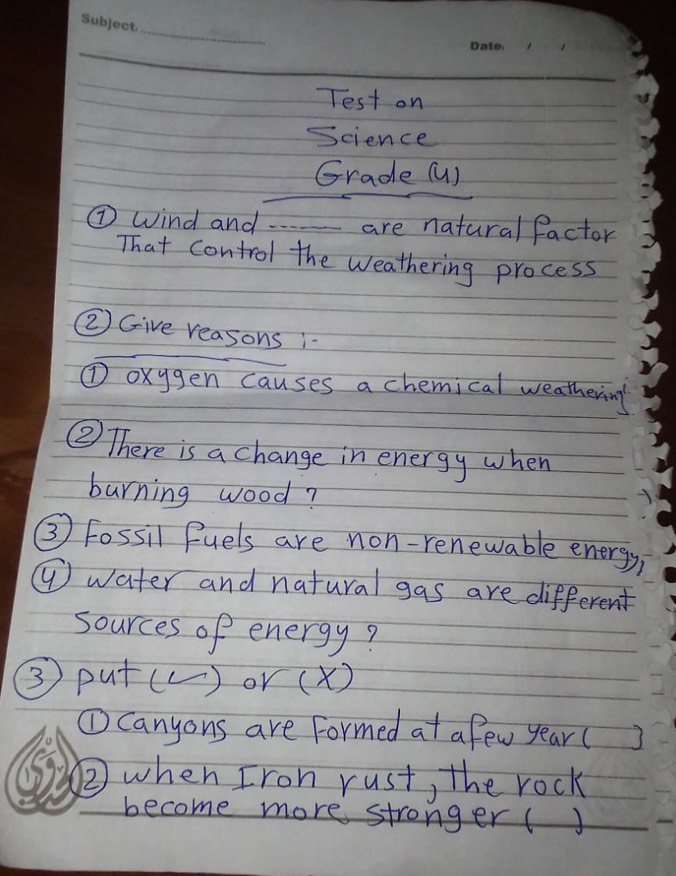 Subject.
Date. / /
Test on
Science
Grade (4)
① Wind and ------- are natural factor
That control the weathering process
② Give reasons :-
① oxygen causes a chemical weathering
② There is a change in energy when
burning wood ?
③ Fossil fuels are non-renewable energy,
④ water and natural gas are different
sources of energy ?
③ put (✓) or (X)
① Canyons are formed at a few year ( )
② when Iron rust, the rock
become more stronger ( )